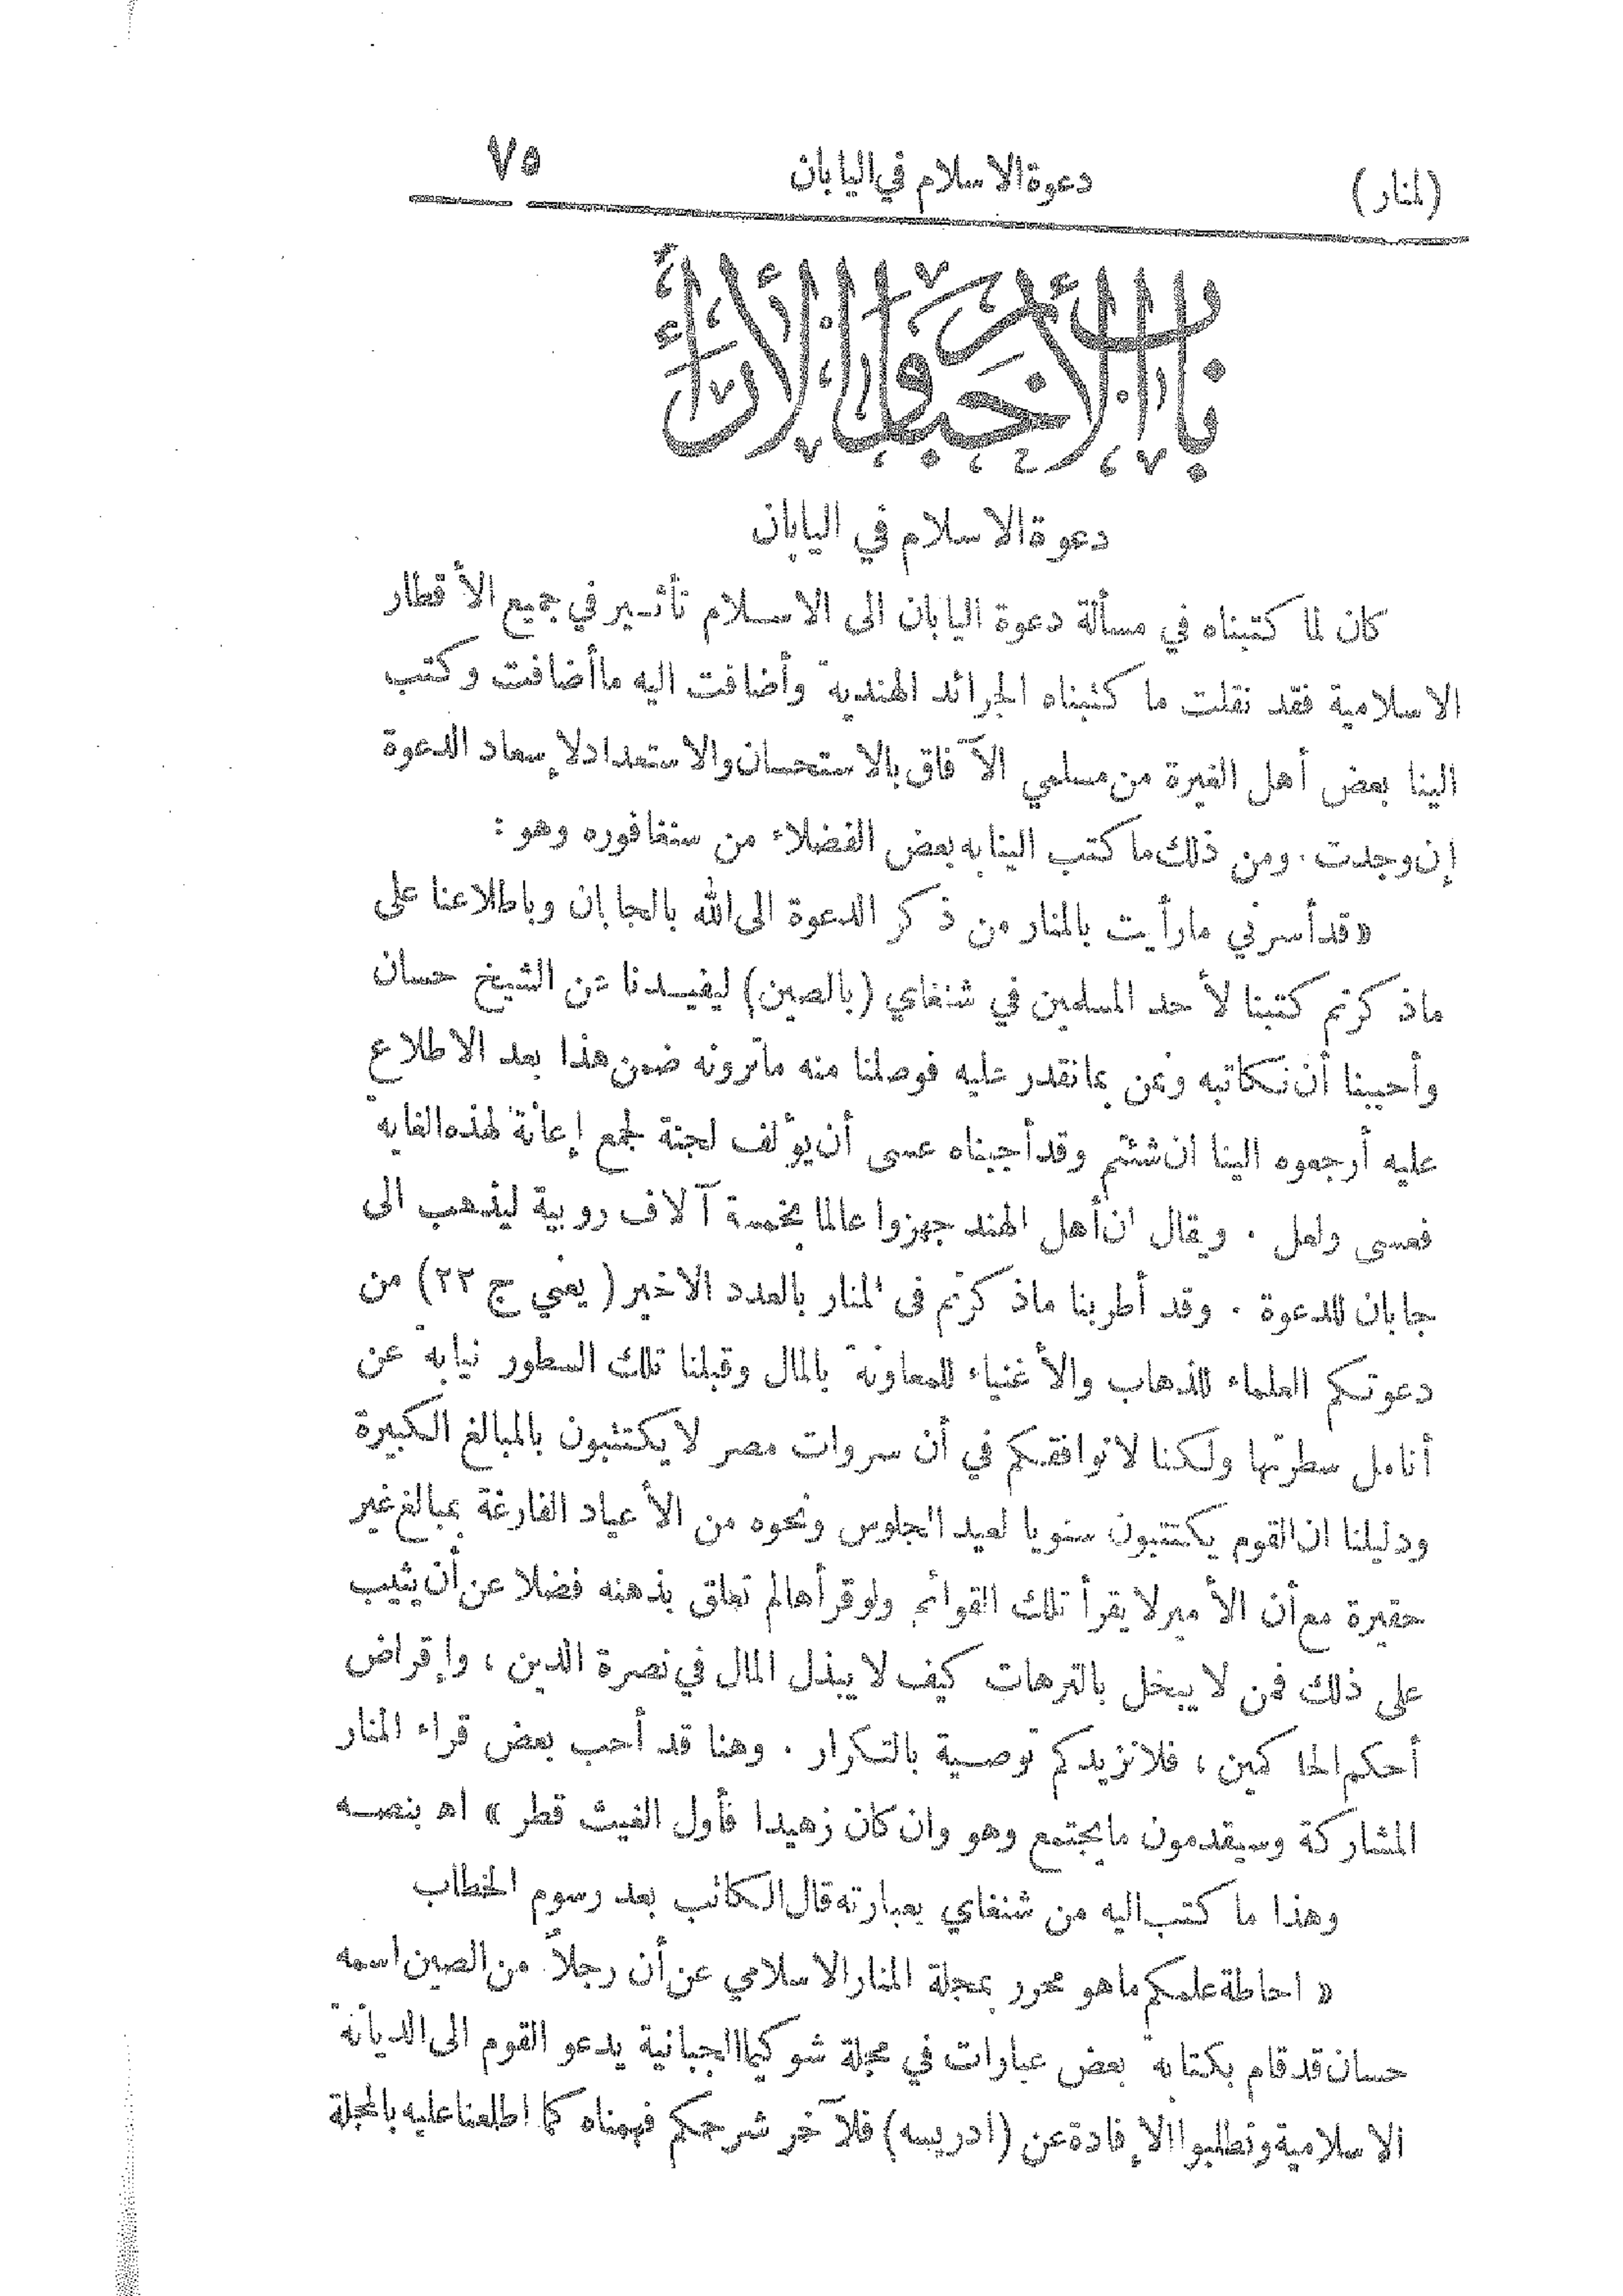 (المنار) دعوة الاسلام في اليابان ٧٥
باب الأخبار والآراء
دعوة الاسلام في اليابان
كان لما كتبناه في مسألة دعوة اليابان الى الاسلام تأثير في جميع الأقطار
الاسلامية فقد نقلت ما كتبناه الجرائد الهندية وأضافت اليه ماأضافت وكتب
الينا بعض أهل الغيرة من مسلمي الآفاق بالاستحسان والاستعداد لإسعاد الدعوة
إن وجدت . ومن ذلك ما كتب الينا به بعض الفضلاء من سنغافوره وهو :
« قد أسرني مارأيت بالمنار من ذكر الدعوة الى الله بالجابان وباطلاعنا على
ماذكرتم كتبنا لأحد المسلمين في شنغاي (بالصين) ليفيدنا عن الشيخ حسان
وأحببنا أن نكاتبه ونعن بما نقدر عليه فوصلنا منه ماترونه ضمن هذا بعد الاطلاع
عليه أرجعوه الينا ان شئتم وقد أجبناه عسى أن يؤلف لجنة لجمع إعانة لهذه الغاية
فعسى ولعل . ويقال ان أهل الهند جهزوا عالما بخمسة آلاف روبية ليذهب الى
جابان للدعوة . وقد أطربنا ماذكرتم فى المنار بالعدد الاخير ( يعني ج ٢٣ ) من
دعوتكم العلماء للذهاب والأغنياء للمعاونة بالمال وقبلنا تلك السطور نيابة عن
أنامل سطرتها ولكنا لا نوافقكم في أن سروات مصر لا يكتتبون بالمبالغ الكبيرة
ودليلنا ان القوم يكتتبون سنويا لعيد الجلوس ونحوه من الأعياد الفارغة بمبالغ غير
حقيرة مع أن الأمير لا يقرأ تلك القوائم ولو قرأها لم تعلق بذهنه فضلا عن أن يثيب
على ذلك فمن لا يبخل بالترهات كيف لا يبذل المال في نصرة الدين ، وإقراض
أحكم الحاكمين ، فلا نزيدكم توصية بالتكرار . وهنا قد أحب بعض قراء المنار
المشاركة وسيقدمون مايجتمع وهو وان كان زهيدا فأول الغيث قطر » اه بنصه
وهذا ما كتب اليه من شنغاي بعبارته قال الكاتب بعد رسوم الخطاب
« احاطة علمكم ماهو محرر بمجلة المنار الاسلامي عن أن رجلاً من الصين اسمه
حسان قد قام بكتابة بعض عبارات في مجلة شوكيما الجبانية يدعو القوم الى الديانة
الاسلامية وتطلبوا الإفادة عن (ادريسه) فلآخر شرحكم فهمناه كما اطلعنا عليه بالمجلة